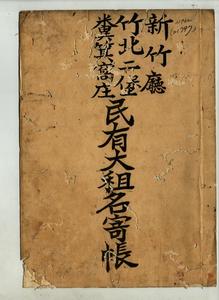 新竹廳
竹北二堡
糞箕窩庄
民有大租名寄帳